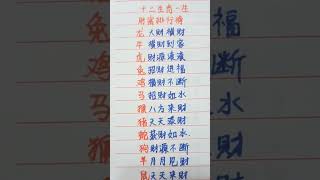 十二生肖一生
财富排行榜
龙大财横财
牛横财到家
虎财源滚滚
兔招财进福
鸡横财不断
马招财如水
猴八方来财
猪天天发财
蛇发财如水
狗财源不断
羊月月见财
鼠天天来财